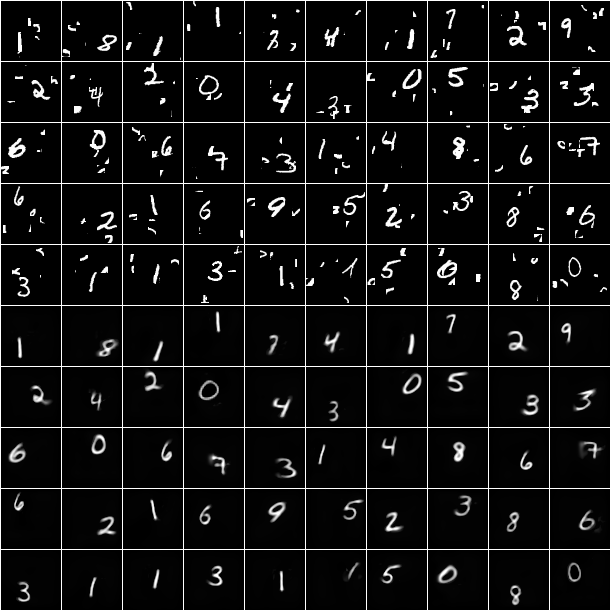 1 8 1 1 3 4 1 7 2 9
2 4 2 0 4 3 0 5 3 3
6 0 6 7 3 1 4 8 6 7
6 2 1 6 9 5 2 3 8 6
3 1 1 3 1 1 5 0 8 0
1 8 1 1 7 4 1 7 2 9
2 4 2 0 4 3 0 5 3 3
6 0 6 7 3 1 4 8 6 7
6 2 1 6 9 5 2 3 8 6
3 1 1 3 1 1 5 0 8 0